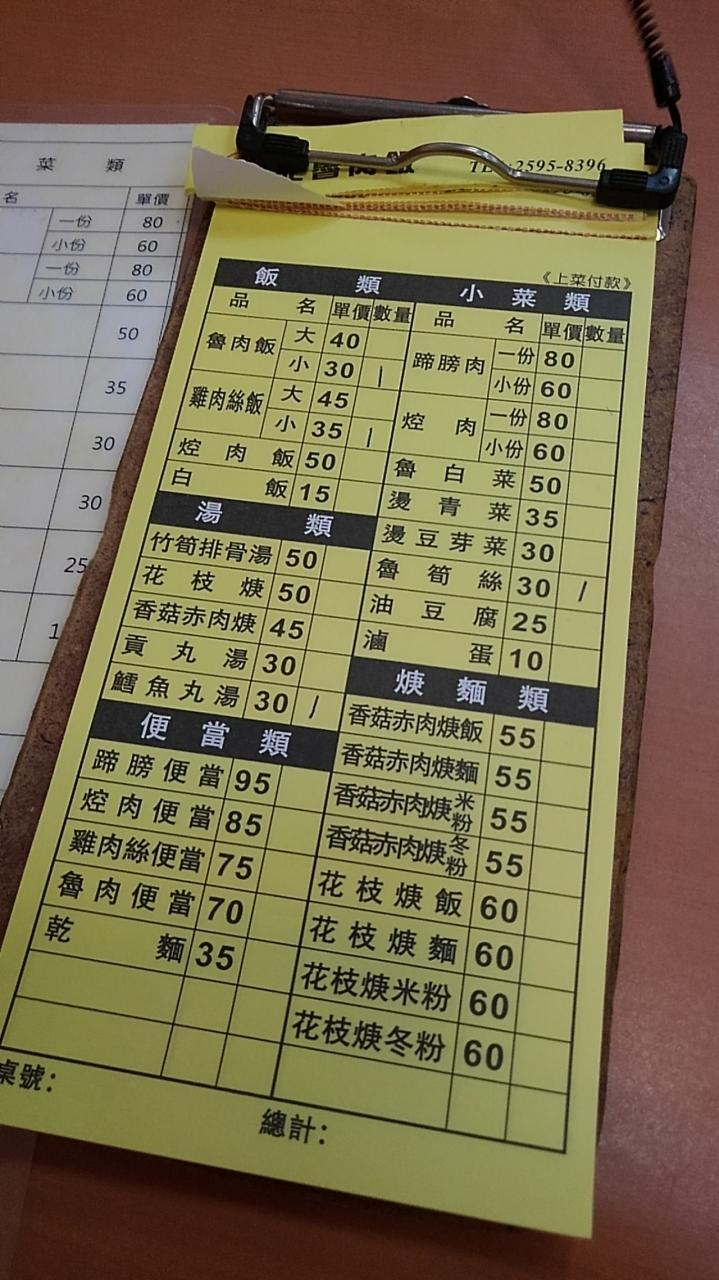 菜 類
名 單價
一份 80
小份 60
一份 80
小份 60
50
35
30
30
25
魯肉飯 2595-8396
《上菜付款》
飯 類
品 名 單價 數量
魯肉飯 大 40
小 30 /
雞肉絲飯 大 45
小 35 /
焢肉飯 50
白飯 15
湯 類
竹筍排骨湯 50
花枝焿 50
香菇赤肉焿 45
貢丸湯 30
鱈魚丸湯 30 /
便當類
蹄膀便當 95
焢肉便當 85
雞肉絲便當 75
魯肉便當 70
乾麵 35
小菜類
品 名 單價 數量
蹄膀肉 一份 80
小份 60
焢肉 一份 80
小份 60
魯白菜 50
燙青菜 35
燙豆芽菜 30
魯筍絲 30 /
油豆腐 25
滷蛋 10
焿麵類
香菇赤肉焿飯 55
香菇赤肉焿麵 55
香菇赤肉焿米粉 55
香菇赤肉焿冬粉 55
花枝焿飯 60
花枝焿麵 60
花枝焿米粉 60
花枝焿冬粉 60
桌號：
總計：